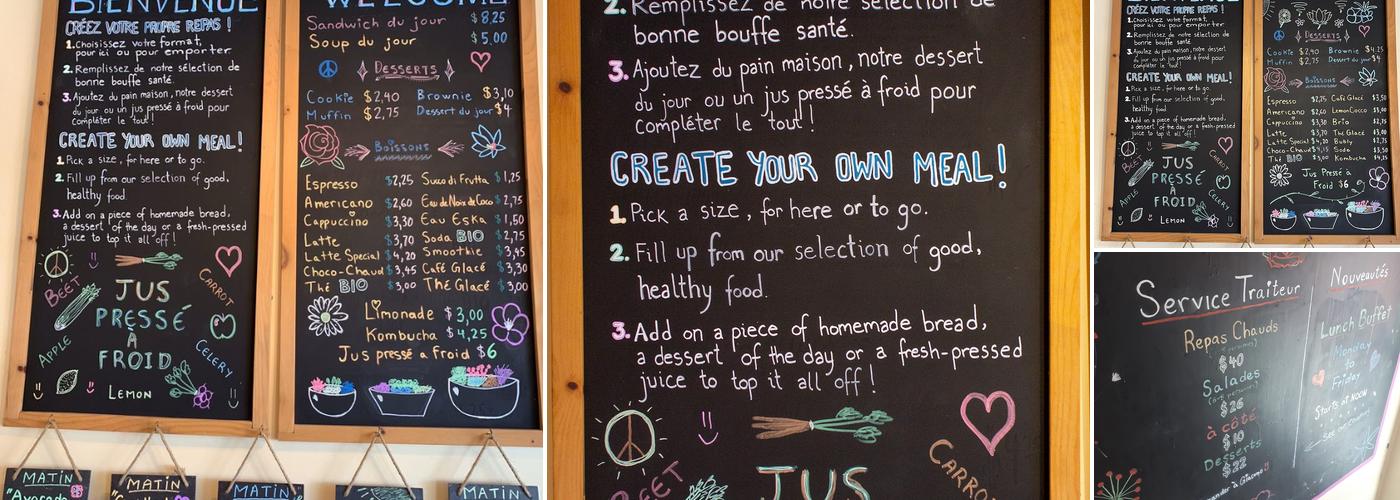 BIENVENUE
CRÉEZ VOTRE PROPRE REPAS !
1. Choisissez votre format,
pour ici ou pour emporter
2. Remplissez de notre sélection de
bonne bouffe santé.
3. Ajoutez du pain maison, notre dessert
du jour ou un jus pressé à froid pour
Compléter le tout !
CREATE YOUR OWN MEAL!
1. Pick a size, for here or to go.
2. Fill up from our selection of good,
healthy food.
3. Add on a piece of homemade bread,
a dessert of the day or a fresh-pressed
juice to top it all off !
BEET
CARROT
JUS
PRESSÉ
À
FROID
APPLE
CELERY
LEMON
WELCOME
Sandwich du jour $ 8.25
Soup du jour $ 5,00
DESSERTS
Cookie $2,40 Brownie $3,10
Muffin $2,75 Dessert du jour $4
BOISSONS
Espresso $2,25 Succo di Frutta $1,25
Americano $2,60 Eau de Noix de Coco $2,75
Cappuccino $3,30 Eau Eska $1,50
Latte $3,70 Soda BIO $2,75
Latte Special $4,20 Smoothie $3,95
Choco-Chaud $3,45 Café Glacé $3,30
Thé BIO $3,00 Thé Glacé $3,00
Limonade $3,00
Kombucha $4,25
Jus pressé a Froid $6
MATIN
"Avocado
MATIN
MATIN
MATIN
2. Remplissez de notre sélection de
bonne bouffe santé.
3. Ajoutez du pain maison, notre dessert
du jour ou un jus pressé à froid pour
Compléter le tout !
CREATE YOUR OWN MEAL!
1. Pick a size, for here or to go.
2. Fill up from our selection of good,
healthy food.
3. Add on a piece of homemade bread,
a dessert of the day or a fresh-pressed
juice to top it all off !
BEET
JUS
CARROT
BIENVENUE
CRÉEZ VOTRE PROPRE REPAS !
1. Choisissez votre format,
pour ici ou pour emporter
2. Remplissez de notre sélection de
bonne bouffe santé
3. Ajoutez du pain maison, notre dessert
du jour ou un jus pressé à froid pour
compléter le tout !
CREATE YOUR OWN MEAL!
1. Pick a size, for here or to go.
2. Fill up from our selection of good,
healthy food
3. Add on a piece of homemade bread,
a dessert of the day or a fresh-pressed
juice to top it all off !
BEET
CARROT
JUS
PRESSÉ
À
FROID
APPLE
LEMON
DESSERTS
Cookie $2,40 Brownie $4,25
Muffin $2,75 Dessert du jour $4
BOISSONS
Espresso $2,75 Café Glacé $3,50
Americano
Cappuccino
Latte $3,70 Thé Glacé $3,00
Latte Special Bubly
Choco-Chaud Soda
Thé BIO $3,00 Kombucha
Jus Pressé à
Froid $6
Service Traiteur
Repas Chauds
$40
Salades
$26
à côté
$10
Desserts
$22
Nouveautés
Lunch Buffet
Monday
to
Friday
Starts at NOON